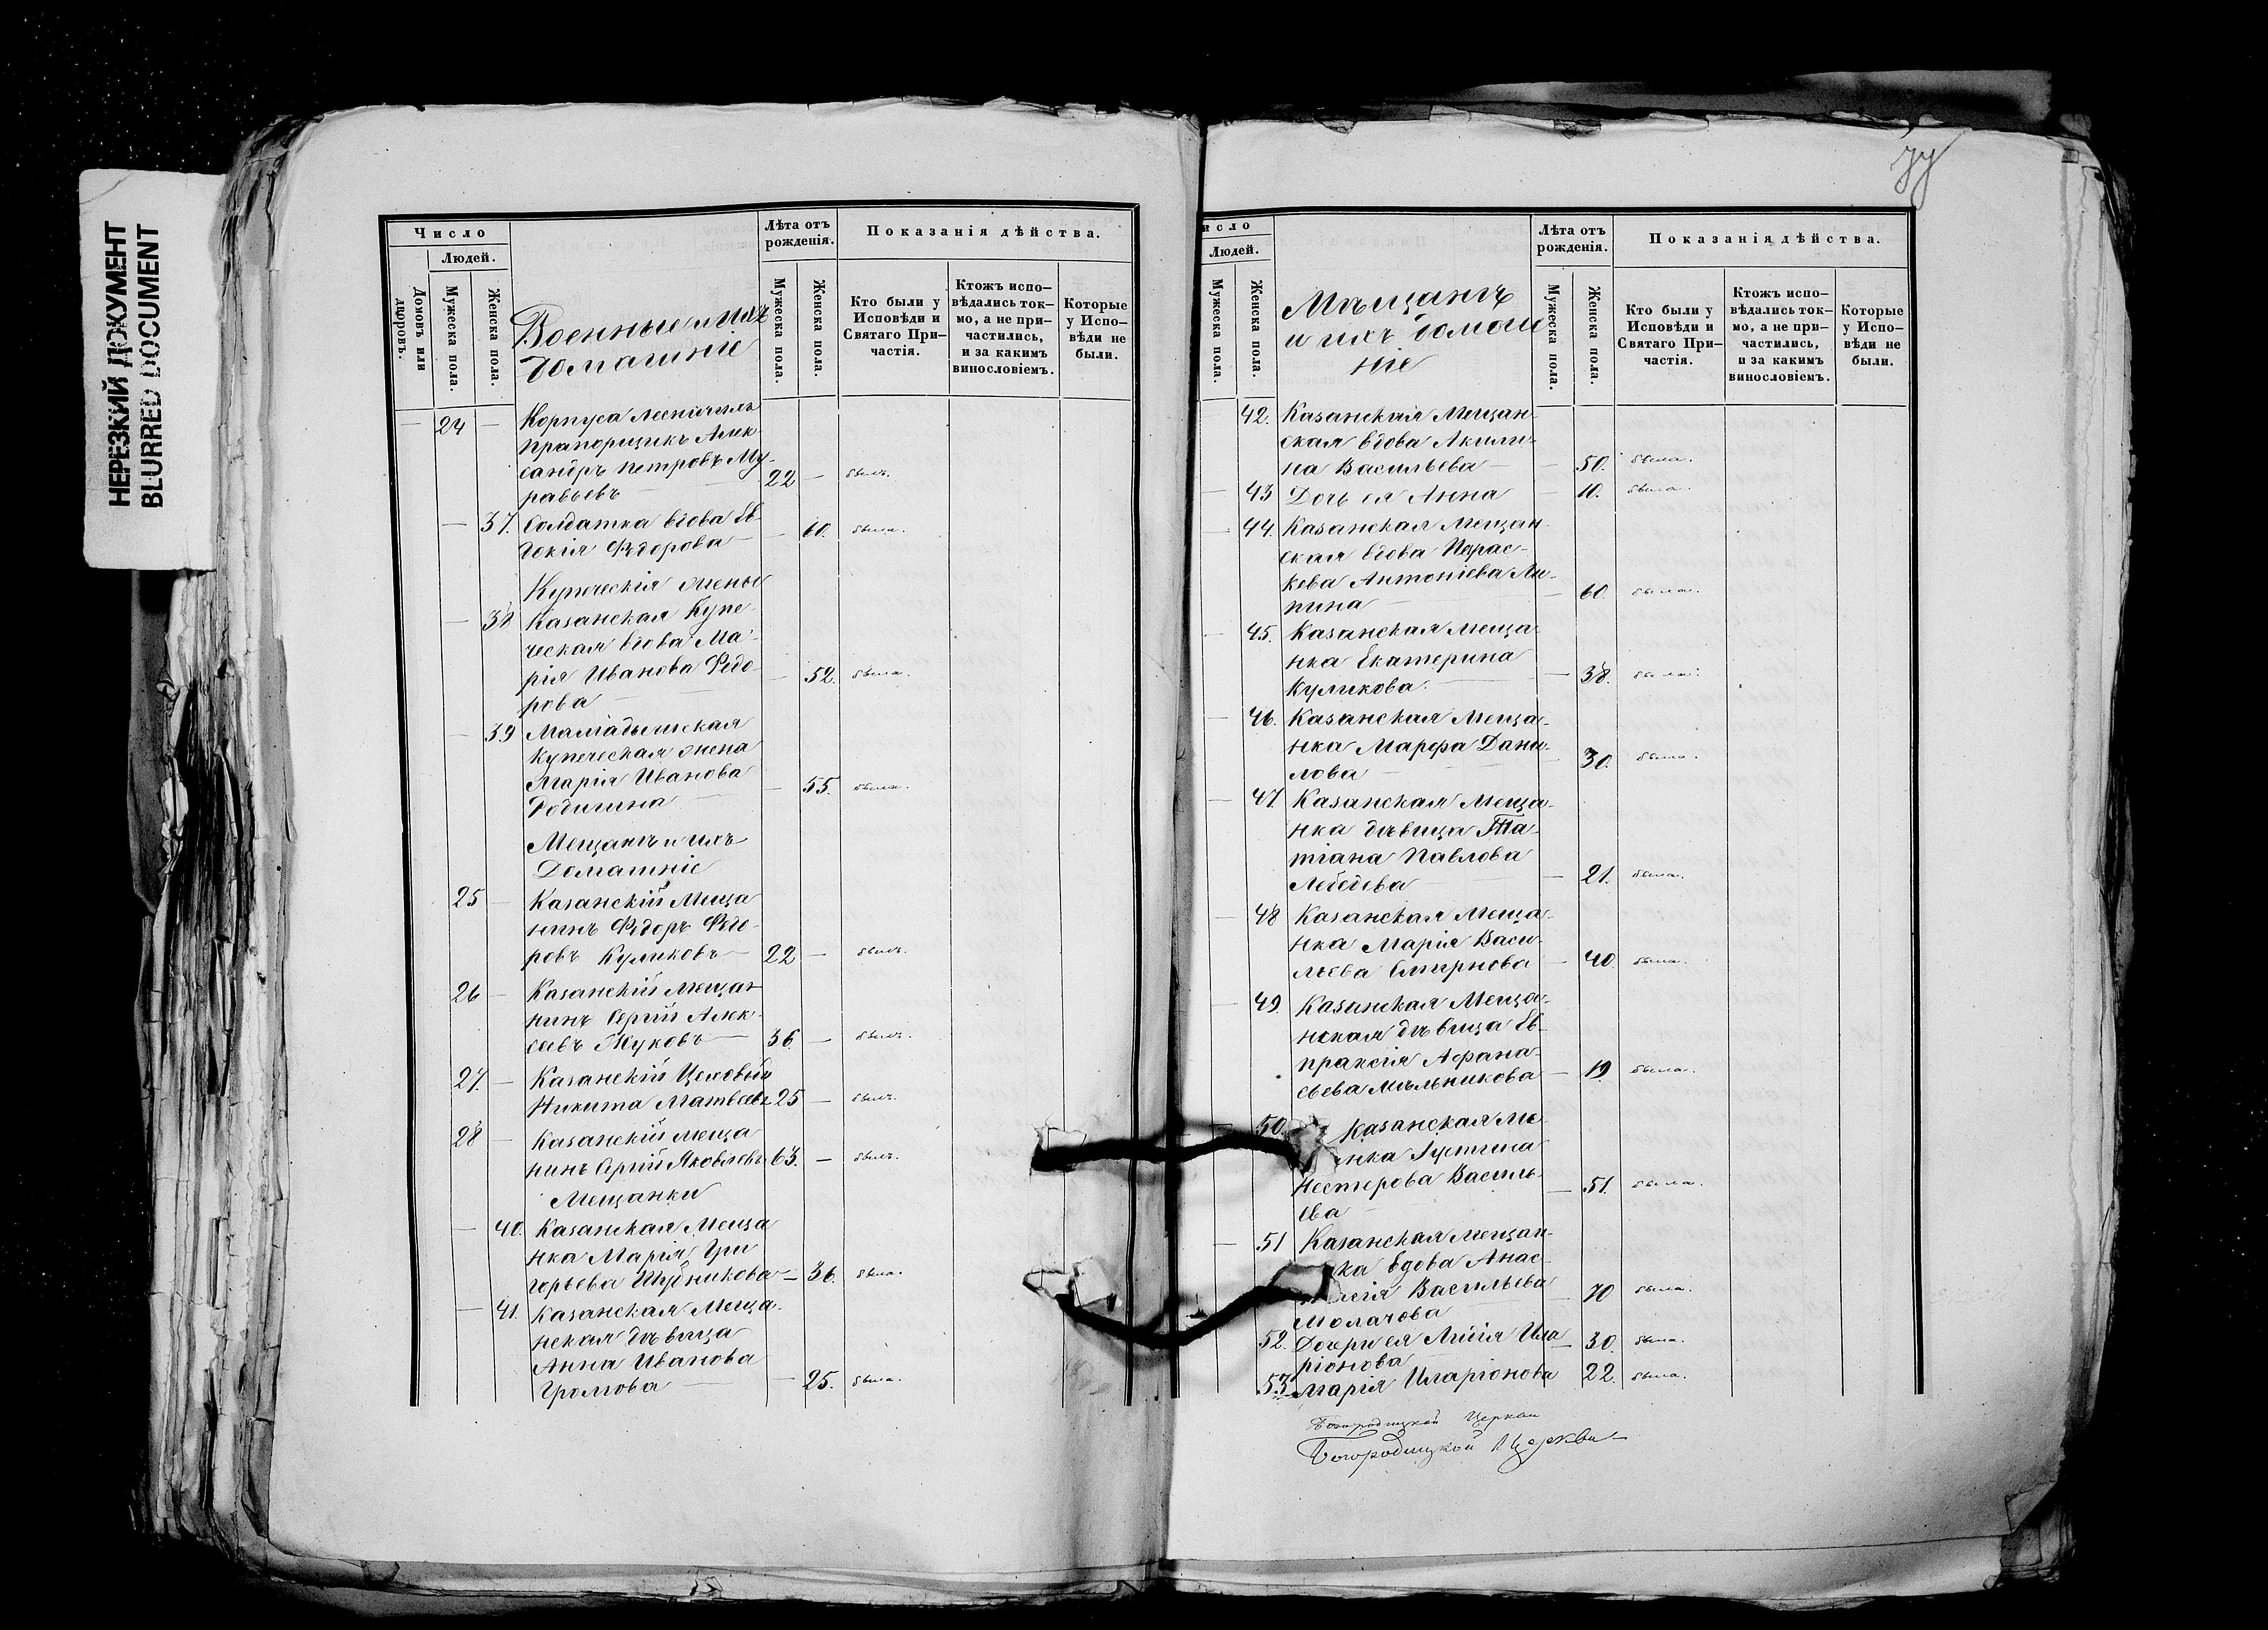 НЕРЕЗКИЙ ДОКУМЕНТ
BLURRED DOCUMENT
Число
Людей.
Домовъ или дворовъ.
Мужеска пола.
Женска пола.
Военные и ихъ
домашніе
Лѣта отъ рожденія.
Мужеска пола.
Женска пола.
Показанія дѣйства.
Кто были у Исповѣди и Святаго Причастія.
Ктожъ исповѣдались токмо, а не причастились, и за какимъ винословіемъ.
Которые у Исповѣди не были.
— 24 — Корпуса лесничихъ
прапорщикъ Алек-
сандръ Петровъ Му-
равьевъ — 22 — былъ.
— 37. Солдатка вдова Ев-
докія Федорова — 60. была.
Купеческія жены
— 38 Казанская купе-
ческая вдова Ма-
рія Иванова Федо-
рова — 52. была.
— 39 Мамадышская
купеческая жена
Марія Иванова
Родигина — 55. была.
Мещанъ и ихъ
Домашніе
25 — Казанскій Меща
нинъ Федоръ Федо-
ровъ Куликовъ — 22 — былъ.
26 — Казанскій Мещан
нинъ Сергій Алек-
сеевъ Жуковъ — 36. — былъ.
27. — Казанскій Цеховый
Никита Матвеевъ 25 — былъ.
28 — Казанскій меща
нинъ Сергій Яковлевъ 63. — былъ.
Мещанки
— 40. Казанская Меща
нка Марія Гри
горьева — 36. была.
— 41. Казанская Меща-
нская дѣвица
Анна Иванова
Громова — 25. была.
исло
Людей.
Мужеска пола.
Женска пола.
Мѣщанъ
и ихъ домаш
ніе
Лѣта отъ рожденія.
Мужеска пола.
Женска пола.
Показанія дѣйства.
Кто были у Исповѣди и Святаго Причастія.
Ктожъ исповѣдались токмо, а не причастились, и за какимъ винословіемъ.
Которые у Исповѣди не были.
— 42. Казанская Мещан-
ская вдова Акили-
на Васильева — 50. была.
— 43 Дочь ея Анна — 10. была.
— 44. Казанская Мещан-
ская вдова Парас-
кева Антоніева Ли-
пина — 60. была.
— 45. Казанская Меща-
нка Екатерина
Куликова. — 38. была.
— 46. Казанская Меща-
нка Марфа Дани-
лова — 30. была.
— 47 Казанская Меща-
нка дѣвица Та-
тіана Павлова
Лебедева — 21. была.
— 48 Казанская Меща-
нка Марія Васи-
льева Смирнова — 40. была.
— 49. Казанская Меща-
нская дѣвица Ев-
праксія Афана-
сьева Мѣльникова — 19. была.
— 50. Казанская Ме
нка Густина
Нестерова Василь-
ева — 51. была.
— 51 Казанская Мещан-
ка вдова Анас-
сія Васильева
Молачова — 70 была.
52. Дочери ея Лидія Ила
ріонова — 30. была.
53 Марія Иларіонова 22. была.
Богородицкой Церкви
Богородицкой Церкви